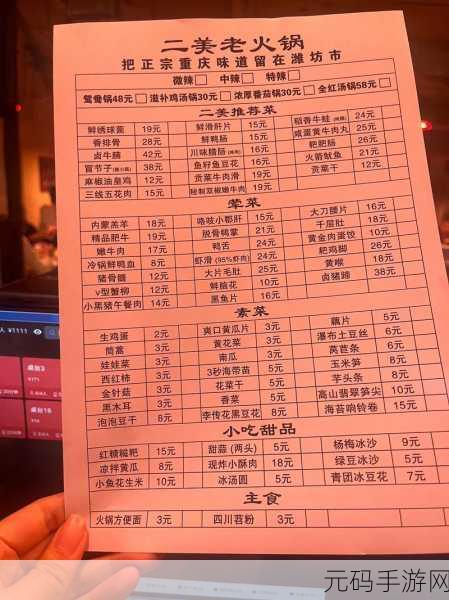 二美老火锅
把正宗重庆味道留在潍坊市
微辣 中辣 特辣
鸳鸯锅48元 滋补鸡汤锅30元 浓厚番茄锅30元 全红汤锅58元
二美推荐菜
鲜绣球菌 19元 鲜滑肝片 15元 稻香牛蛙 24元
香排骨 28元 鲜鸭肠 15元 咸蛋黄牛肉丸 25元
卤牛腩 42元 川味腊肠 15元 粑肥肠 26元
冒节子 38元 鱼籽鱼豆花 16元 火箭鱿鱼 21元
麻椒油皇鸡 12元 贡菜牛肉滑 19元 贡菜干 12元
三线五花肉 15元 秘制双椒嫩牛肉 19元
荤菜
内蒙羔羊 18元 咯吱小郡肝 15元 大刀腰片 16元
精品肥牛 19元 脱骨鸭掌 21元 千层肚 18元
嫩牛肉 17元 鸭舌 24元 黄金肉蛋饺 10元
冷锅鲜鸭血 8元 虾滑 (95%虾肉) 24元 粑鸡脚 26元
猪骨髓 12元 大片毛肚 25元 黄喉 18元
v型蟹柳 12元 鲜脑花 10元 卤猪蹄 38元
小黑猪午餐肉 14元 黑鱼片 16元
素菜
生鸡蛋 2元 爽口黄瓜片 3元 藕片 5元
茼蒿 3元 黄花菜 3元 瀑布土豆丝 6元
娃娃菜 3元 南瓜 3元 莴苣条 6元
西红柿 3元 3秒海带苗 5元 玉米笋 8元
金针菇 3元 花菜干 5元 芋头条 8元
黑木耳 3元 香菜 5元 高山翡翠笋尖 10元
泡泡豆干 8元 李传花黑豆花 6元 海苔响铃卷 15元
小吃甜品
红糖糍粑 15元 甜蒜 (两头) 5元 杨梅冰沙 9元
凉拌黄瓜 8元 现炸小酥肉 18元 绿豆冰沙 5元
小鱼花生米 10元 冰汤圆 5元 青团冰豆花 7元
主食
火锅方便面 3元 四川苕粉 3元
人 ¥1111
桌台3
桌台16
元码手游网